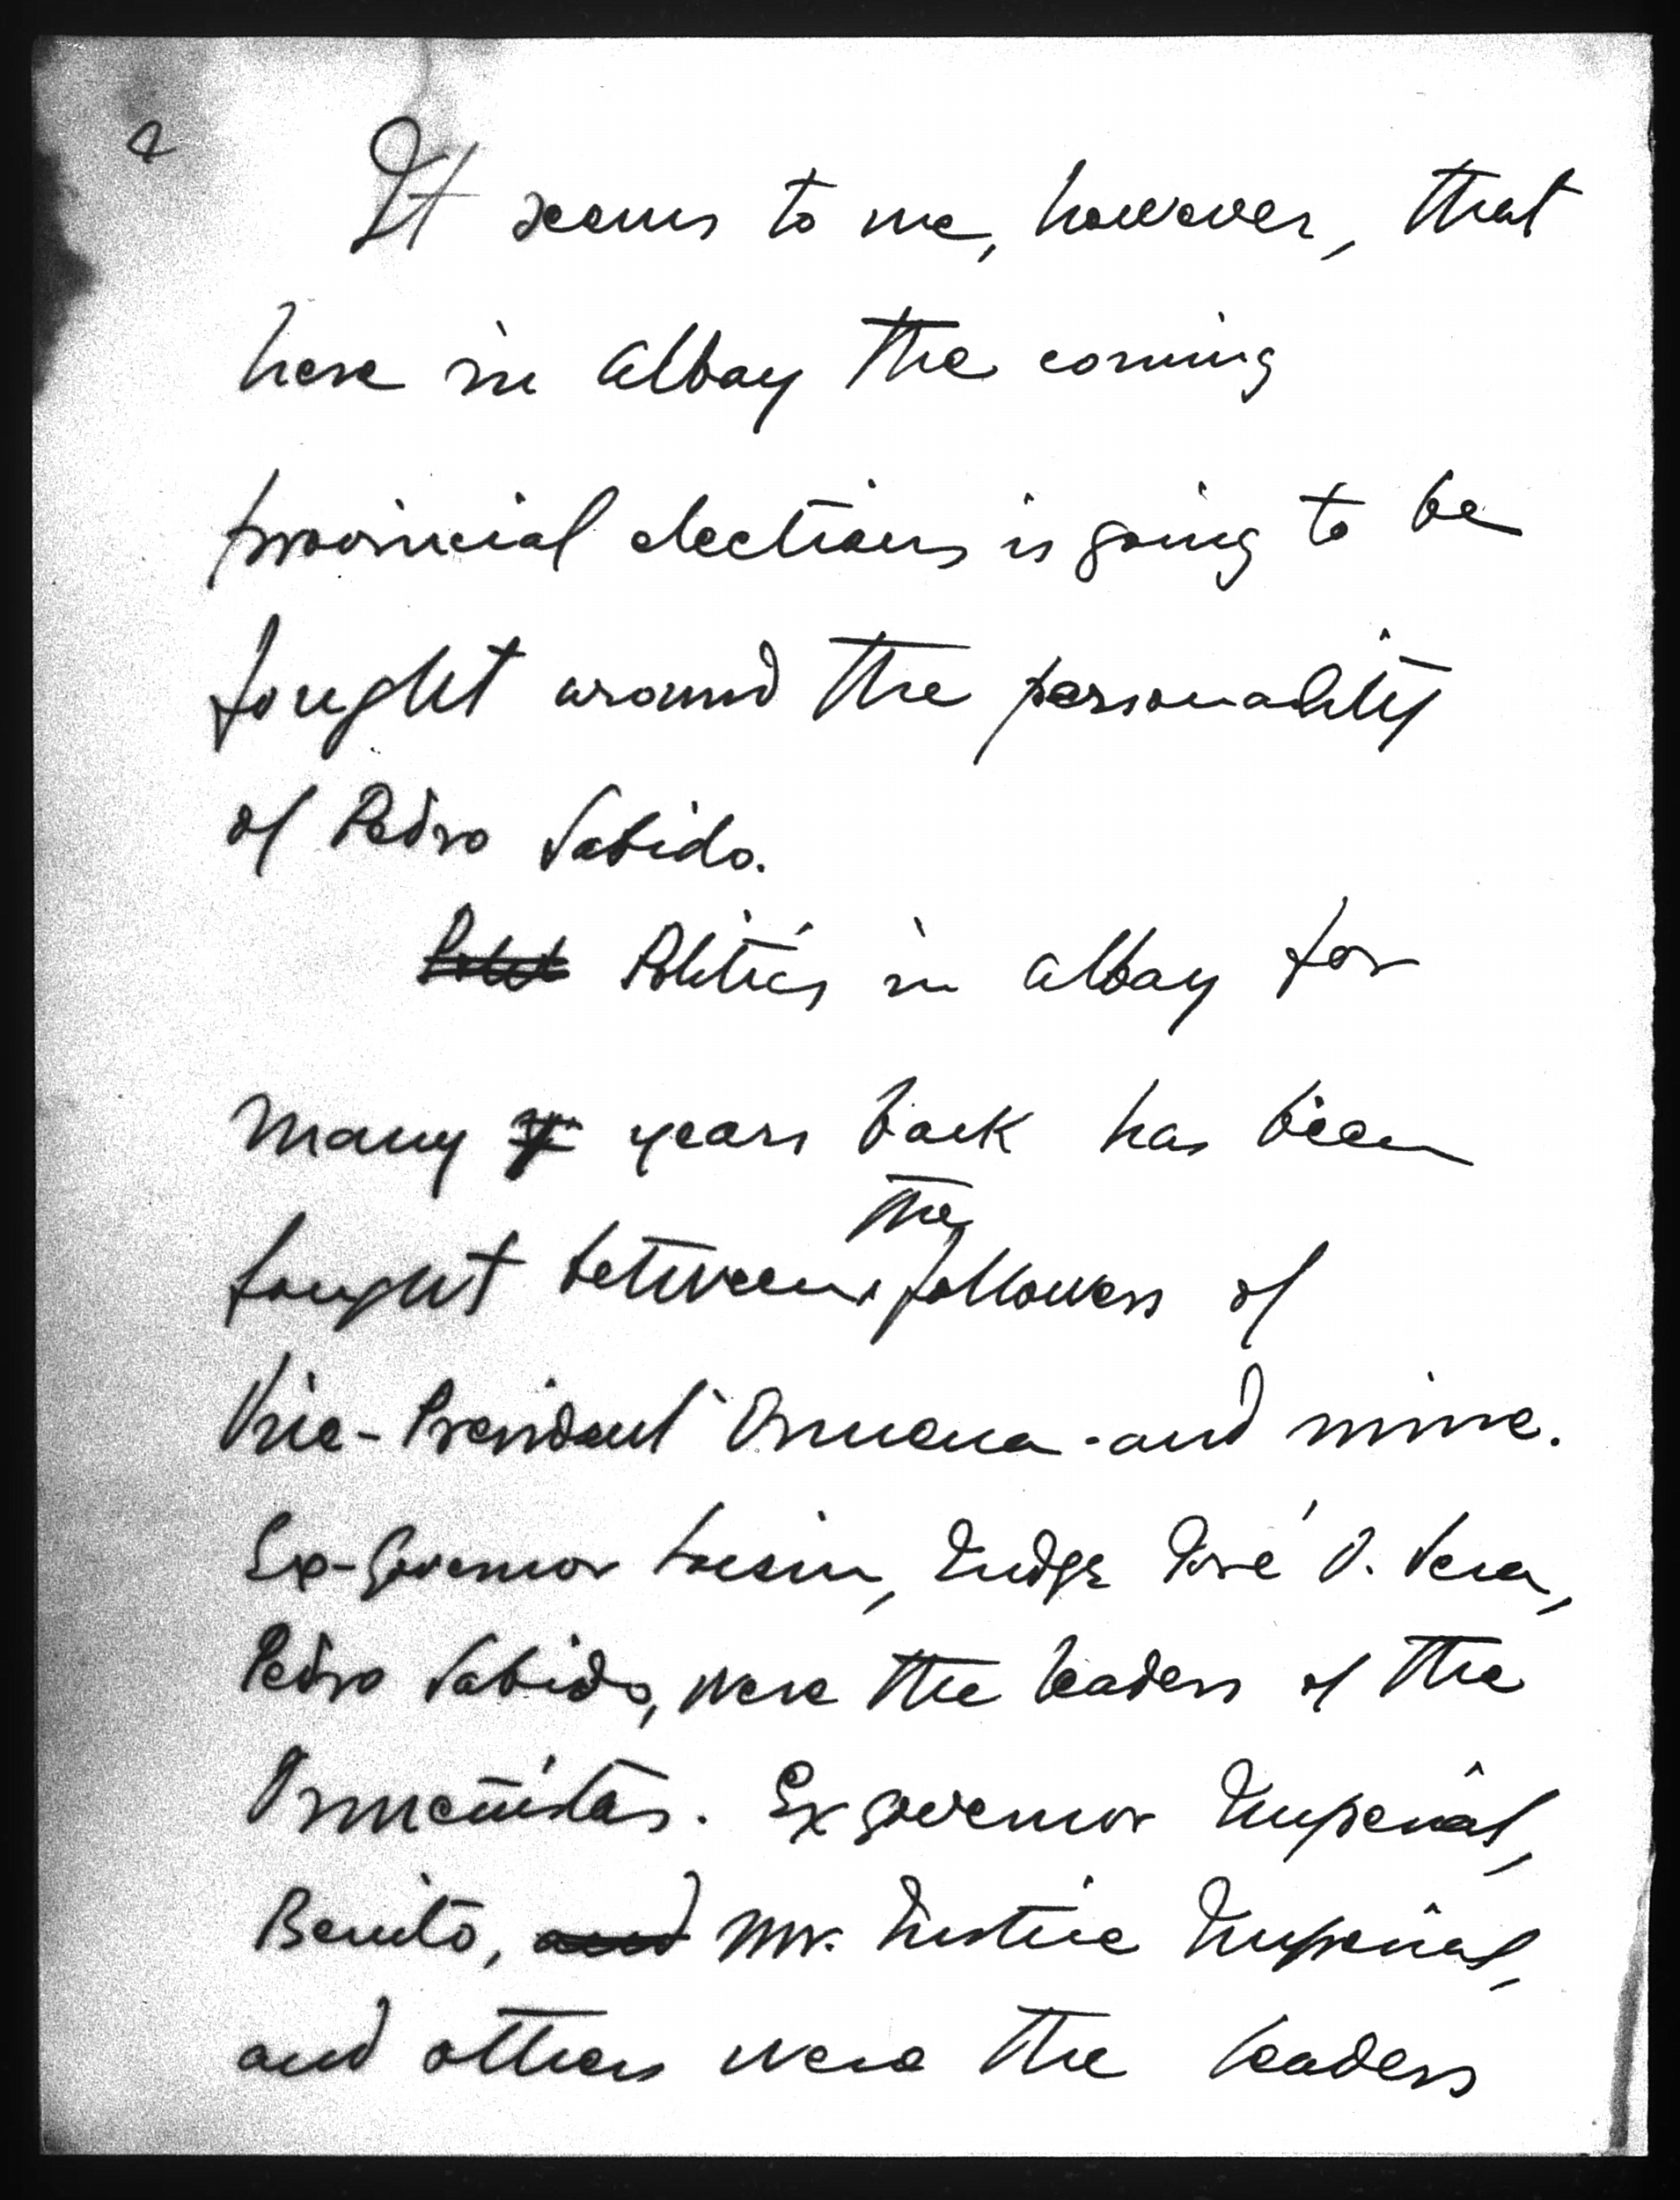 2
It seems to me, however, that
here in Albay the coming
provincial elections is going to be
fought around the personality
of Pedro Sabido.
Politics in Albay for
many years back has been
the
fought between followers of
Vice-President Osmena and mine.
Ex-Governor Locsin, Judge José O. Vera,
Pedro Sabido, were the leaders of the
Osmeñistas. Ex Governor Imperial,
Benito, and Mr. Justice Imperial,
and others were the leaders